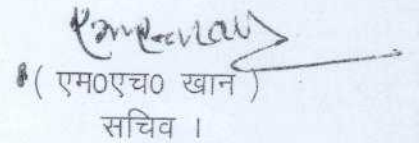 ( एम0एच0 खान )
सचिव ।